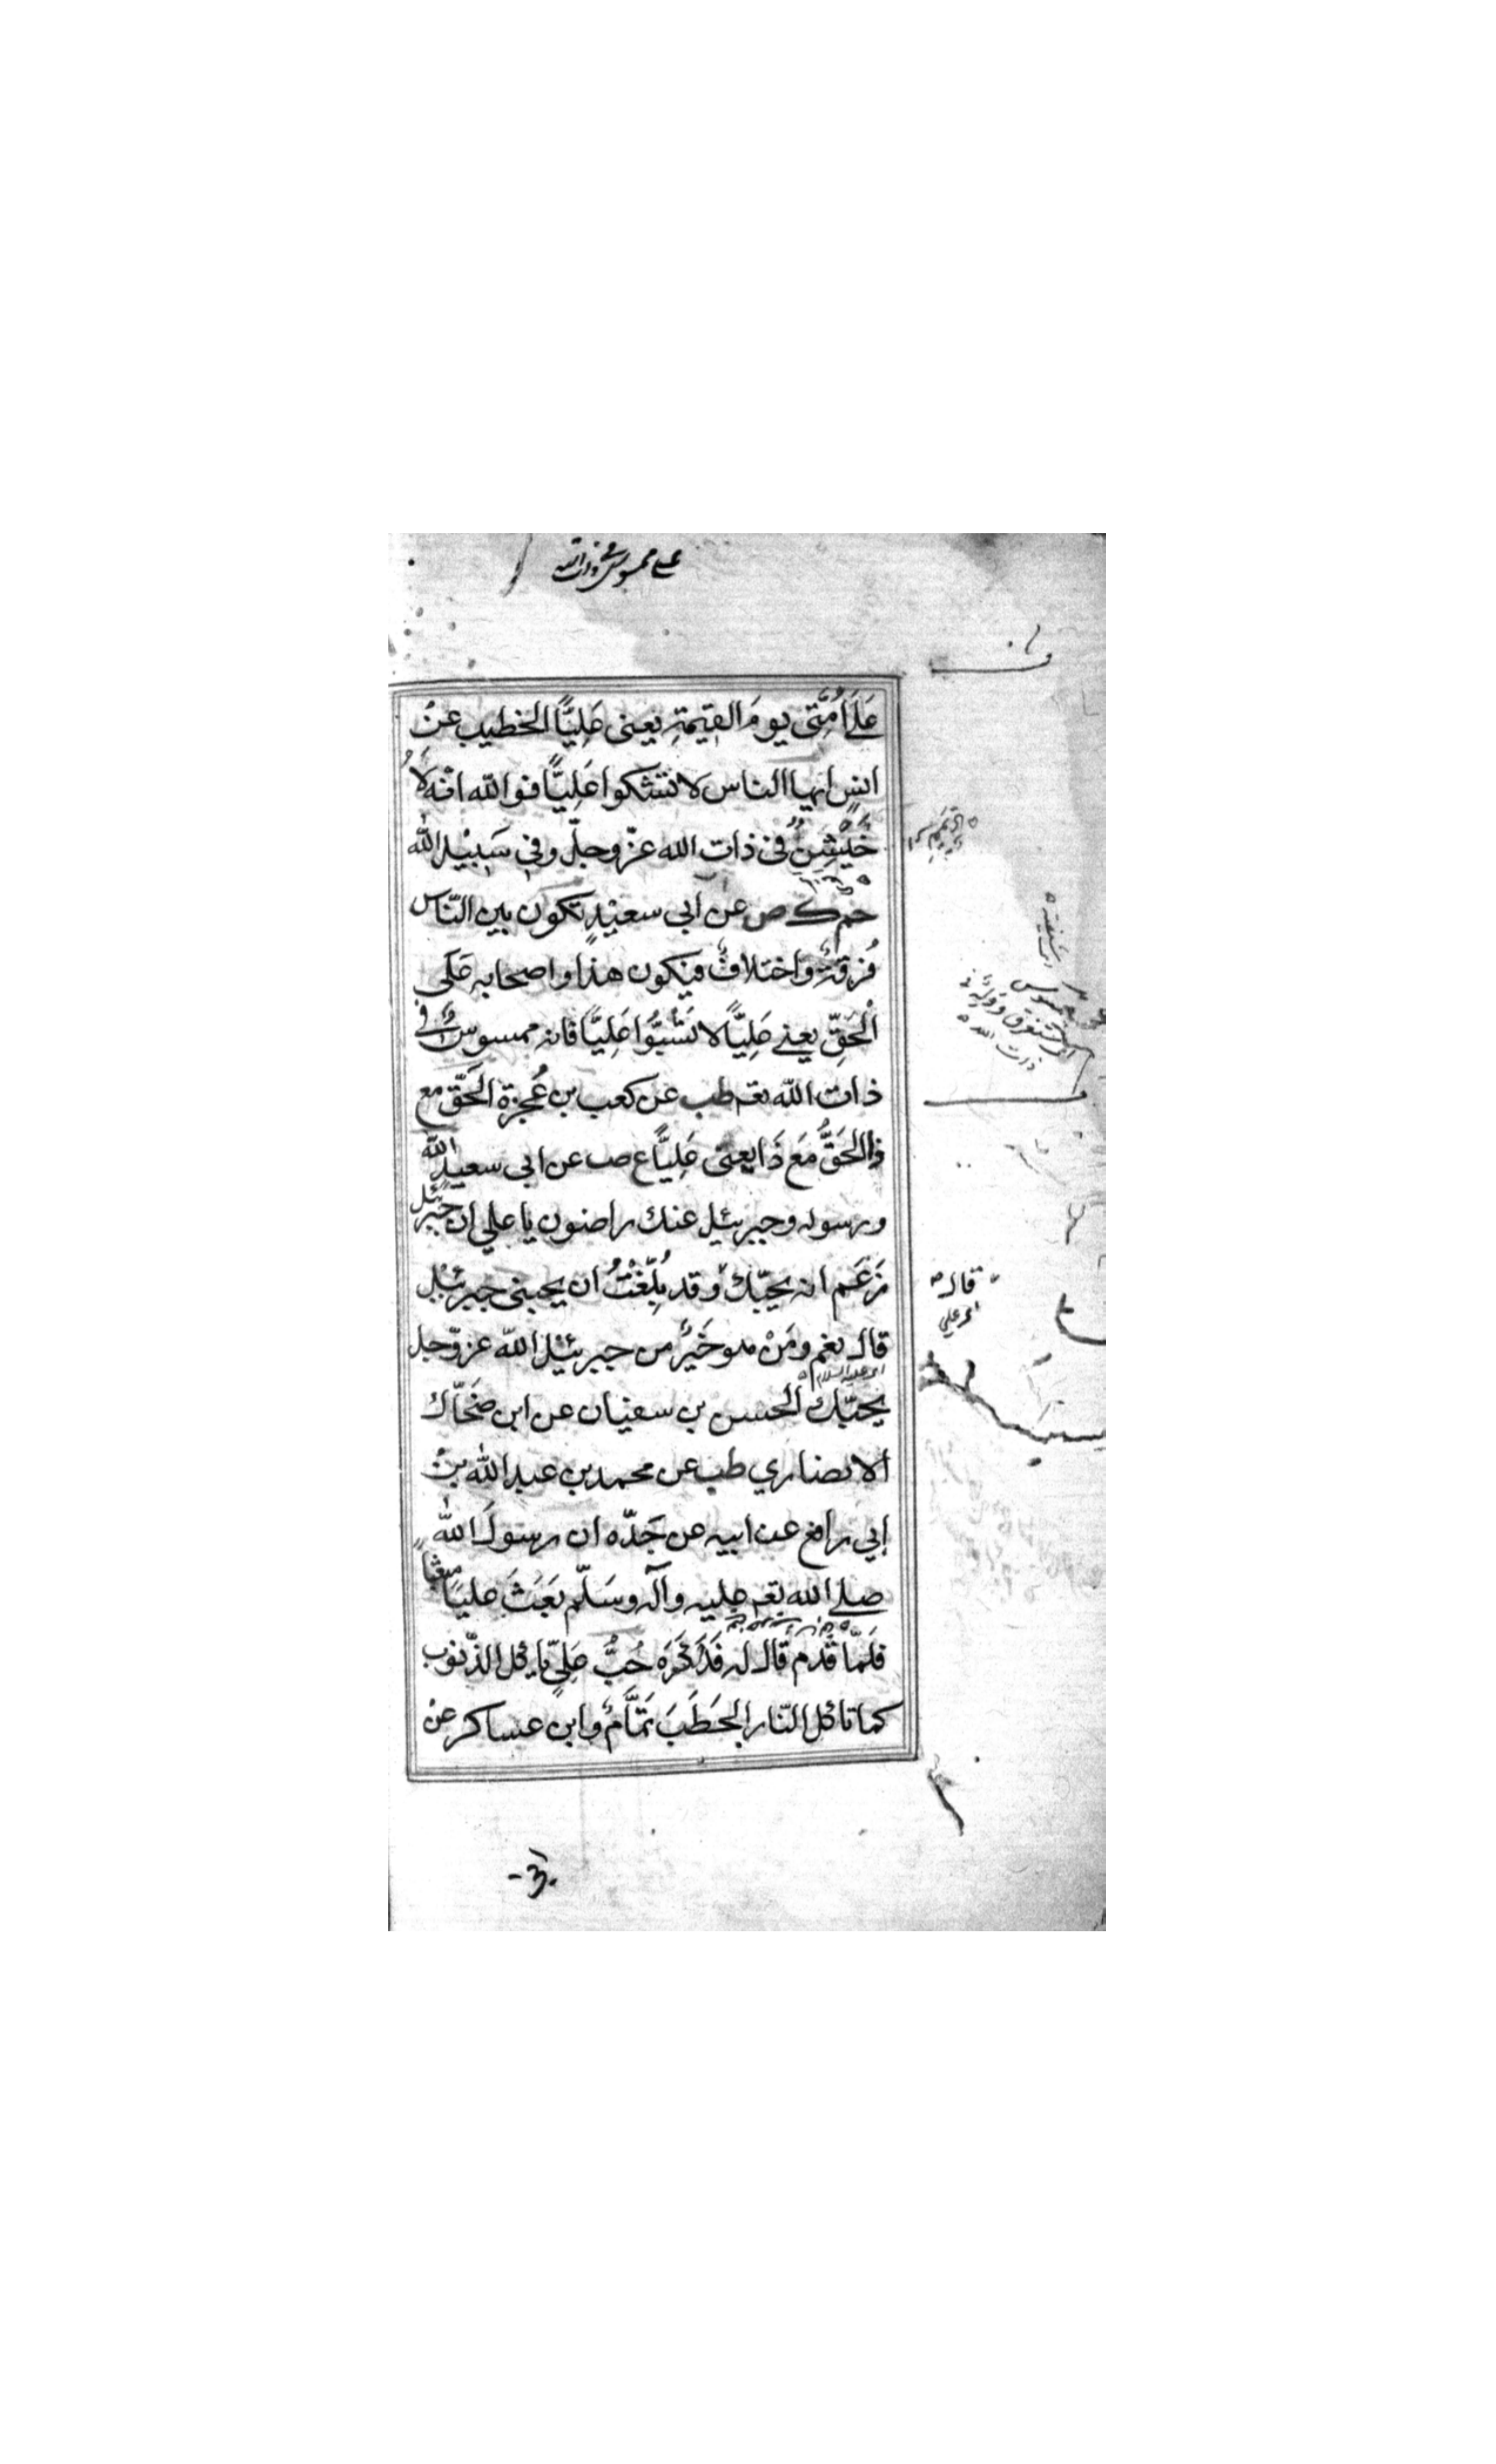 علي ممسوس في ذات الله
عَلَى اُمَّتى يومَ القِيٰمةِ يعنى عَلِيًّا الخطيب عن
انسٍ ايها الناس لا تشكوا عَلِيًّا فوالله انّه لَاُ
خَيْشِنٌ فى ذات الله عزّوجلّ وفى سَبِيْلِ اللّٰه
حم ك ص عن ابى سعيْدٍ تكون بين النّاس
فُرقةٌ واختلافٌ فيكون هذا واصحابه عَلَى
الْحَقِّ يعنے عَلِيًّا لا تَسُبُّوا عَلِيًّا فانه ممسوسٌ فى
ذات اللّه تعم طب عن كعب بن عُجرة الحَقّ مع
ذا الحَقُّ مَع ذَا يعنى عَلِيًّا ع ص عن ابى سعيدٍ اللّٰه
ورسوله وجبرئيل عنك راضون يا علي ان جبرئيل
زَعَم انه يحبّك وقد بُلّغْتُ ان يحبنى جبرئيل
قال نعم ومَنْ هو خَيرٌ من جبرئيل اللّه عزّوجل
يحبّك الحسن بن سفيان عن ابن ضحّاك
الانصاري طب عن محمد بن عبد اللّٰه بن
ابي رافع عن ابيه عن جَدّه ان رسولَ اللّٰه
صلے اللّه تعم عليه وآله وسَلّم بَعَثَ عليًا مبعثًا
فَلَمّا قَدم قال له فَذَكَرَه حُبُّ عَلِيٍّ يأكل الذّنوب
كما تاكل النّار الحَطَبَ تَمَّامٌ وابن عساكر عن
قال